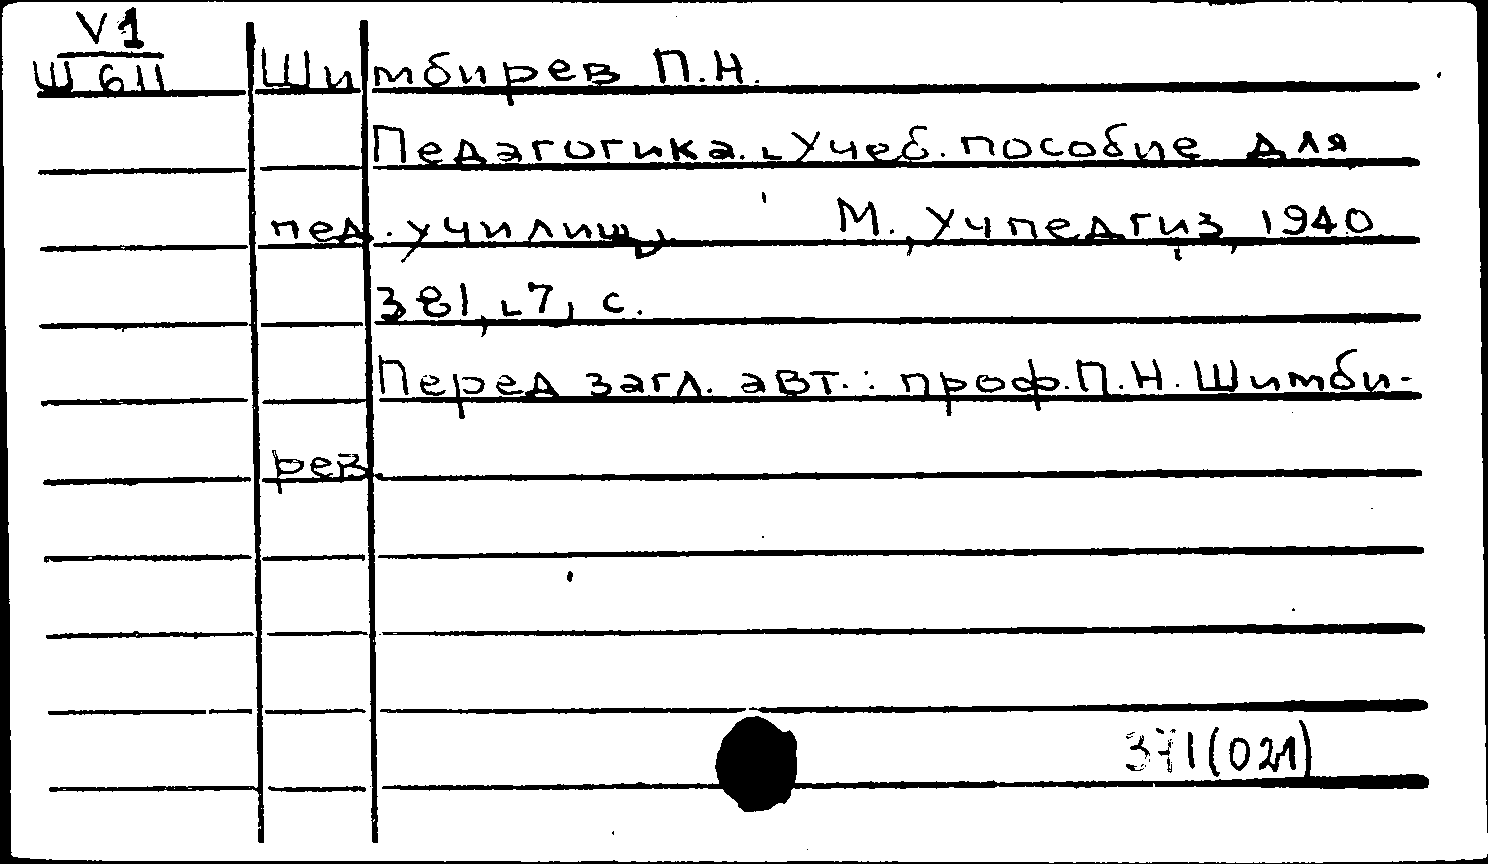 V1
Ш 611
Шимбирев П.Н.
Педагогика. [Учеб. пособие для
пед. училищ]. М., Учпедгиз, 1940.
381, [7] с.
Перед загл. авт.: проф. П.Н. Шимби-
рев.
371(021)